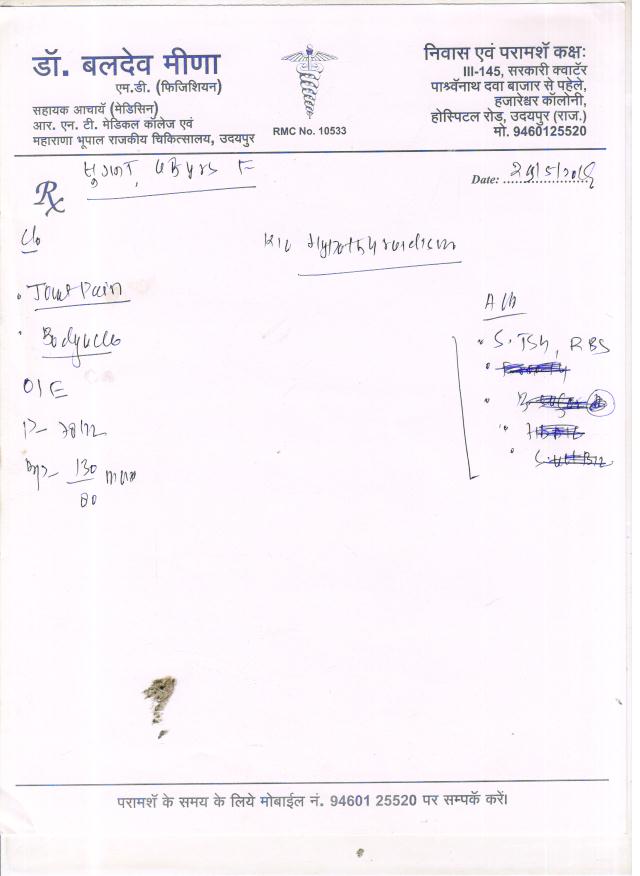 डॉ. बलदेव मीणा
एम.डी. (फिजिशियन)
सहायक आचार्य (मेडिसिन)
आर. एन. टी. मेडिकल कॉलेज एवं
महाराणा भूपाल राजकीय चिकित्सालय, उदयपुर
RMC No. 10533
निवास एवं परामर्श कक्षः
III-145, सरकारी क्वार्टर
पार्श्वनाथ दवा बाजार से पहले,
हजारेश्वर कॉलोनी,
होस्पिटल रोड, उदयपुर (राज.)
मो. 9460125520
Rx
Date:
C/o
K/C Hypothyroidism
Joint Pain
Bodyache
O/E
P- 78/m
BP- 130/80 mm
Adv
S. TSH, RBS
परामर्श के समय के लिये मोबाईल नं. 94601 25520 पर सम्पर्क करें।